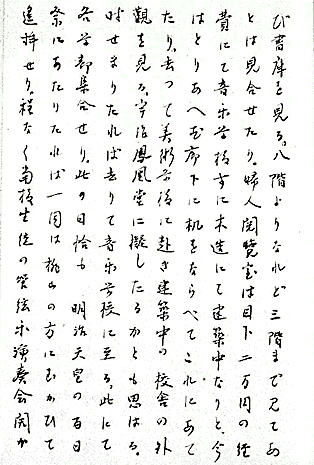 び書庫を見る。八階よりなれど三階まで見てあ
とは見合せたり。婦人閲覧室は目下二万円の経
費にて音楽学校すに木造にて建築中なりと、今
はとりあへず廊下に机をならべてこれにあて
たり。去つて美術学校に赴き建築中の校舎の外
観を見る。宇治鳳凰堂に擬したるかとも思はる。
時せまりたれば去りて音楽学校に至る。此にて
各学部集合せり。此の日恰も 明治天皇の百日
祭にあたりたれば一同は桃山の方にむかひて
遥拝せり。程なく南校生徒の管絃楽演奏会開か